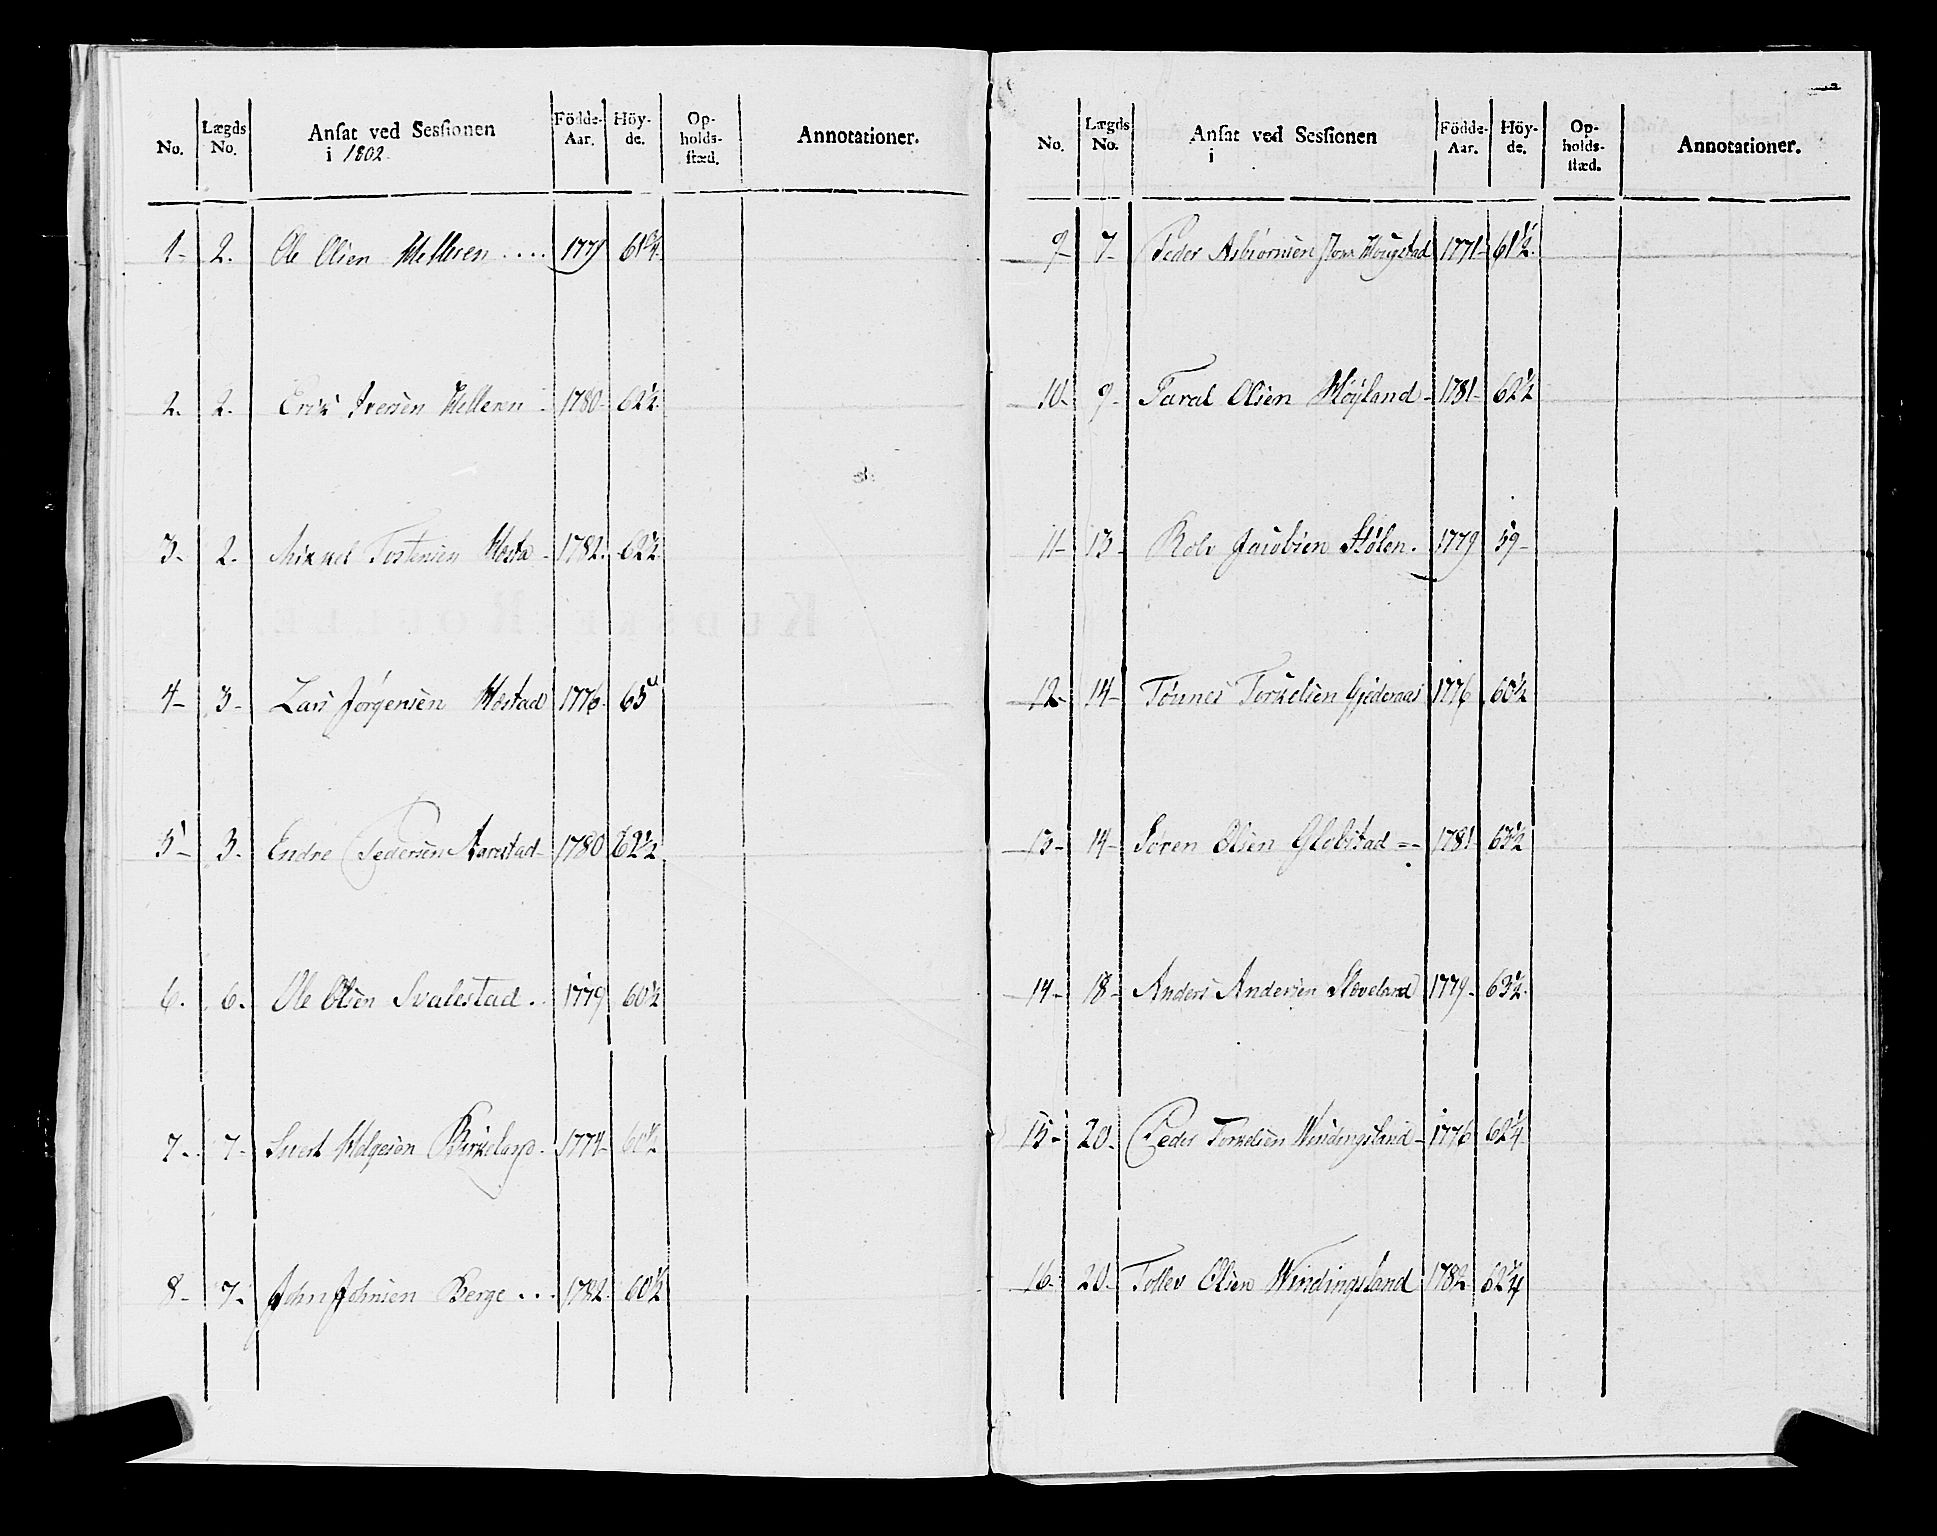 No. Lægds No. Ansat ved Sessionen i 1802. Födde-Aar. Höy-de. Op-holds-stæd. Annotationer.
1- 2. Ole Olsen Helleren .... 1771 61 3/4.
2. 2. Erik Iversen Helleren - 1780- 62 1/2.
3- 2. Mikkel Tostensen Hesta - 1782. 62 1/2.
4- 3- Lars Jörgensen Hestad 1776. 65"
5- 3- Endre Pedersen Aarrestad- 1780 62 1/2.
6. 6. Ole Olsen Svalestad .. 1779 60 1/2
7- 7- Sivert Helgesen Birkeland. 1774- 60 1/2
8- 7- John Johnsen Berge ... 1782. 60 1/2
No. Lægds No. Ansat ved Sessionen i Födde-Aar. Höy-de. Op-holds-stæd. Annotationer.
9- 7- Peder Asbiörnsen 1771- 61 1/2.
10- 9- Taral Olsen Höyland- 1781- 62 1/2
11- 13- Rolv Jacobsen Stölen. 1779 59-
12- 14- Tönnes Torkelsen 1776 60 1/2
13- 14- Sören Olsen Globstad =- 1781- 63 1/2
14- 18- Anders Andersen Sleveland 1779- 63 1/2.
15- 20- Peder Torkelsen Windingsland- 1776 62 1/4
16- 20- Tollev Olsen Windingsland 1782 62 1/4